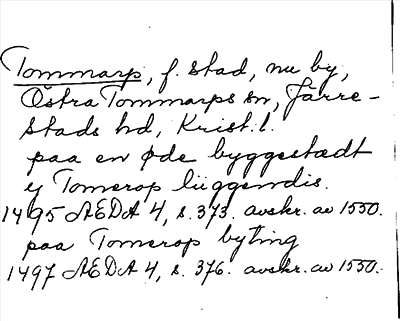 Tommarp, f. stad, nu by,
Östra Tommarps sn, Järre-
stads hd, Krist. l.
paa en øde byggestædt
y Tomerop liiggendis.
1495 ÆDA 4, s. 373. avskr. av 1550.
paa Tomerop byting
1497 ÆDA 4, s. 376. avskr. av 1550.